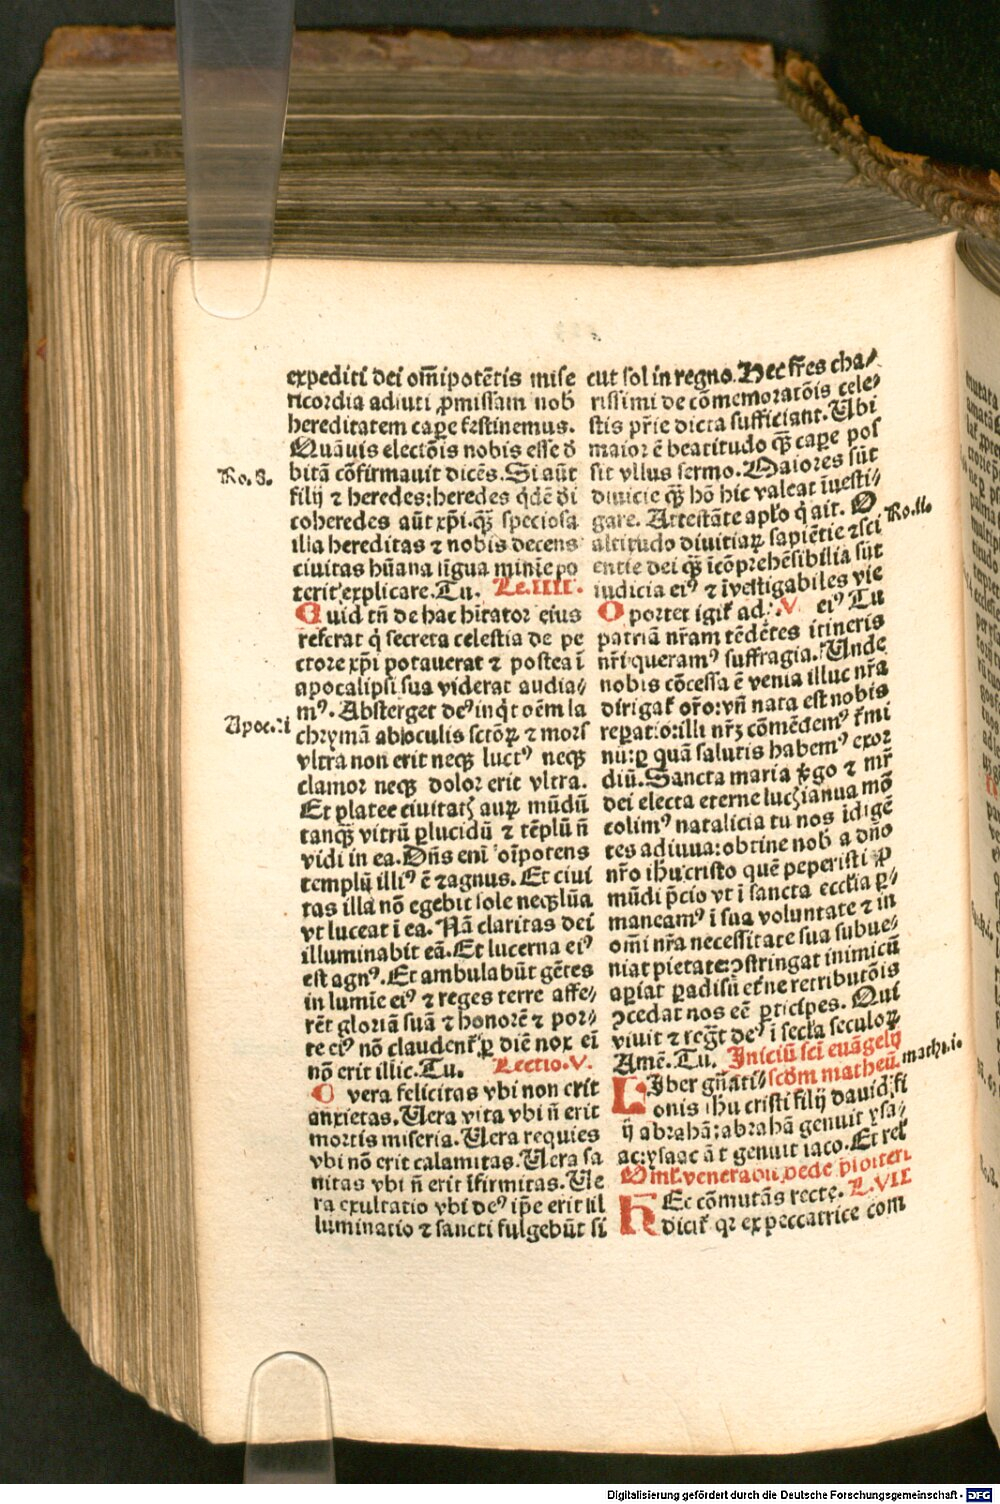 expediti dei om̄ipotētis mise
ricordia adiuti ꝓmissam nob̄
hereditatem capꝫe festinemus.
Quāuis electiōis nobis esse đ
bitā cōfirmauit dicēs. Si aūt
filij ⁊ heredes: heredes q̄dē di
coheredes aūt xp̄i. qꝫ̄ speciosa
illa hereditas ⁊ nobis decens
ciuitas hūana ligua minīe po
terit explicare. Tu. Le.IIII.
Quid tn̄ de hac hitator eius
referat q̇ secreta celestia de pe
ctore xp̄i potauerat ⁊ postea ī
apocalipsi sua viderat audia⸗
mꝰ. Absterget deꝰ inq̇t oēm la
chrymā ab oculis sctōꝝ ⁊ mors
vltra non erit neqꝫ luctꝰ neqꝫ
clamor neqꝫ dolor erit vltra.
Et platee ciuitatꝭ auꝝ mūdū
tanqꝫ̄ vitrū ꝑlucidū ⁊ tēplū n̄
vidi in ea. Dn̄s enī oīpotens
templū illiꝰ ē ⁊ agnus. Et ciui
tas illa nō egebit sole neqꝫ lūa
vt luceat ī ea. Nā claritas dei
illuminabit eā. Et lucerna eiꝰ
est agnꝰ. Et ambulabūt gētes
in lumīe eiꝰ ⁊ reges terre affe⸗
rēt gloriā suā ⁊ honorē ⁊ por⸗
te eiꝰ nō claudentᷣ ꝑ diē nox eī
nō erit illic. Tu. Lectio.V.
O vera felicitas vbi non erit
anxietas. Uera vita vbi n̄ erit
mortis miseria. Uera requies
vbi nō erit calamitas. Uera sa
nitas vbi n̄ erit īfirmitas. Ue
ra exultatio vbi deꝰ ip̄e erit ill
luminatio ⁊ sancti fulgebūt si
Ro.8.
Apoc.i
cut sol in regno. Hec fr̄es cha⸗
rissimi de cōmemoratōis cele⸗
stis pr̄ie dicta sufficiant. Ubi
maior ē beatitudo qꝫ̄ capꝫe pos
sit vllus sermo. Maiores sūt
diuicie qꝫ̄ hō hic valeat īuesti⸗
gare. Attestāte aplō q̇ ait. O
altitudo diuitiaꝝ sapiētie ⁊ sci
entie dei qꝫ̄ icōprehēsibilia sūt
iudicia eiꝰ ⁊ īvestigabiles vie
Oportet igitᷣ ad. V. eiꝰ Tu
patriā nr̄am tēdētes itineris
nr̄i queramꝰ suffragia. Unde
nobis cōcessa ē venia illuc nr̄a
dirigatᷣ or̄o: vn̄ nata est nobis
reparatio: illi nr̄ꝫ cōmēdemꝰ t̄mi
nū: ꝑ quā salutis habemꝰ exor
diū. Sancta maria v̄go ⁊ mr̄
dei electa eterne lucꝭ ianua mō
colimꝰ natalicia tu nos īdigē
tes adiuua: obtine nob̄ a dn̄o
nr̄o ihū cristo quē peperisti ꝓ
mūdi p̄cio vt ī sancta eccl̄ia ꝑ⸗
maneamꝰ ī sua voluntate ⁊ in
om̄i nr̄a necessitate sua subue⸗
niat pietate: ꝯstringat inimicū
apꝫiat ꝑadisū eterne retributōis
ꝯcedat nos eē ꝑticīpes. Qui
viuit ⁊ regt̄ deꝰ ī secl̄a seculoꝝ
Amē. Tu. Iniciū sc̄i euāgelij
Liber gn̄ati⸗ scd̄m matheū
onis ihū cristi filij dauid: fi
ij abrahā: abrahā genuit ysa⸗
ac: ysaac āt genuit iaco. Et rel̄
Hec cōmutās recte. L.VII
dicitᷣ qꝛ ex peccatrice com
Ro.II.
math.i.
Digitalisierung gefördert durch die Deutsche Forschungsgemeinschaft - DFG